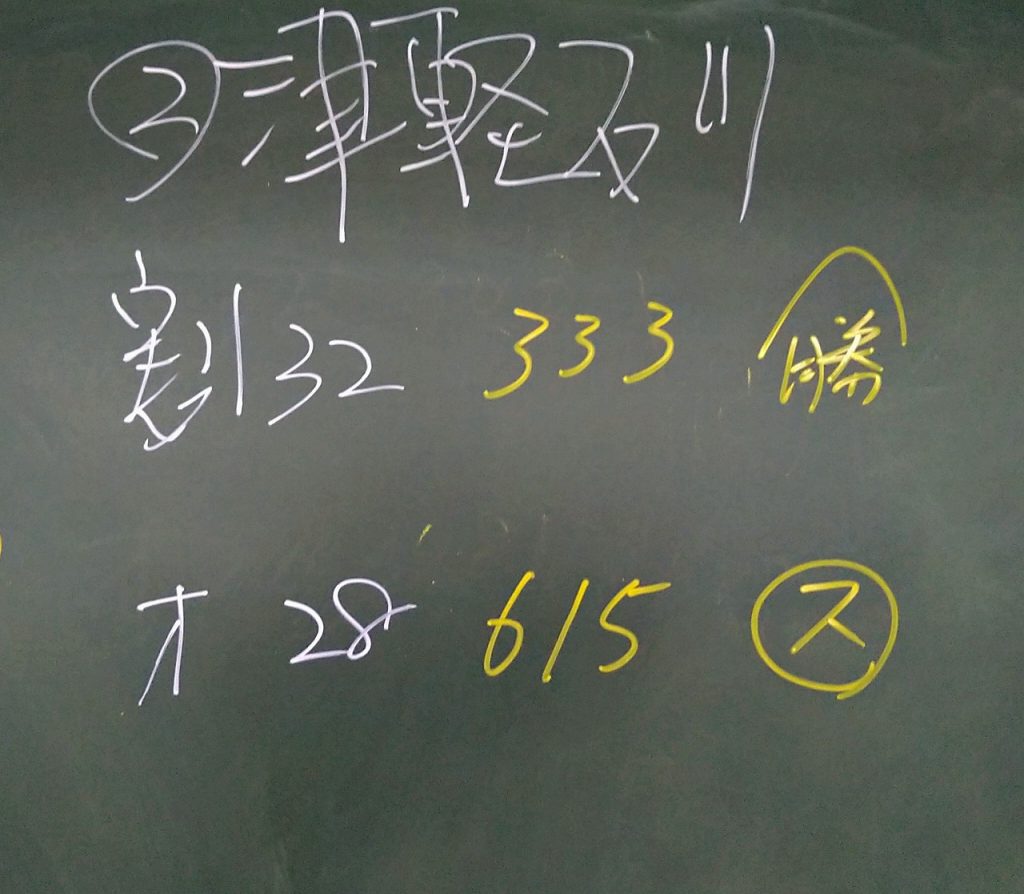 ③津軽及川
割32 333 勝
才 28 615 ㋜